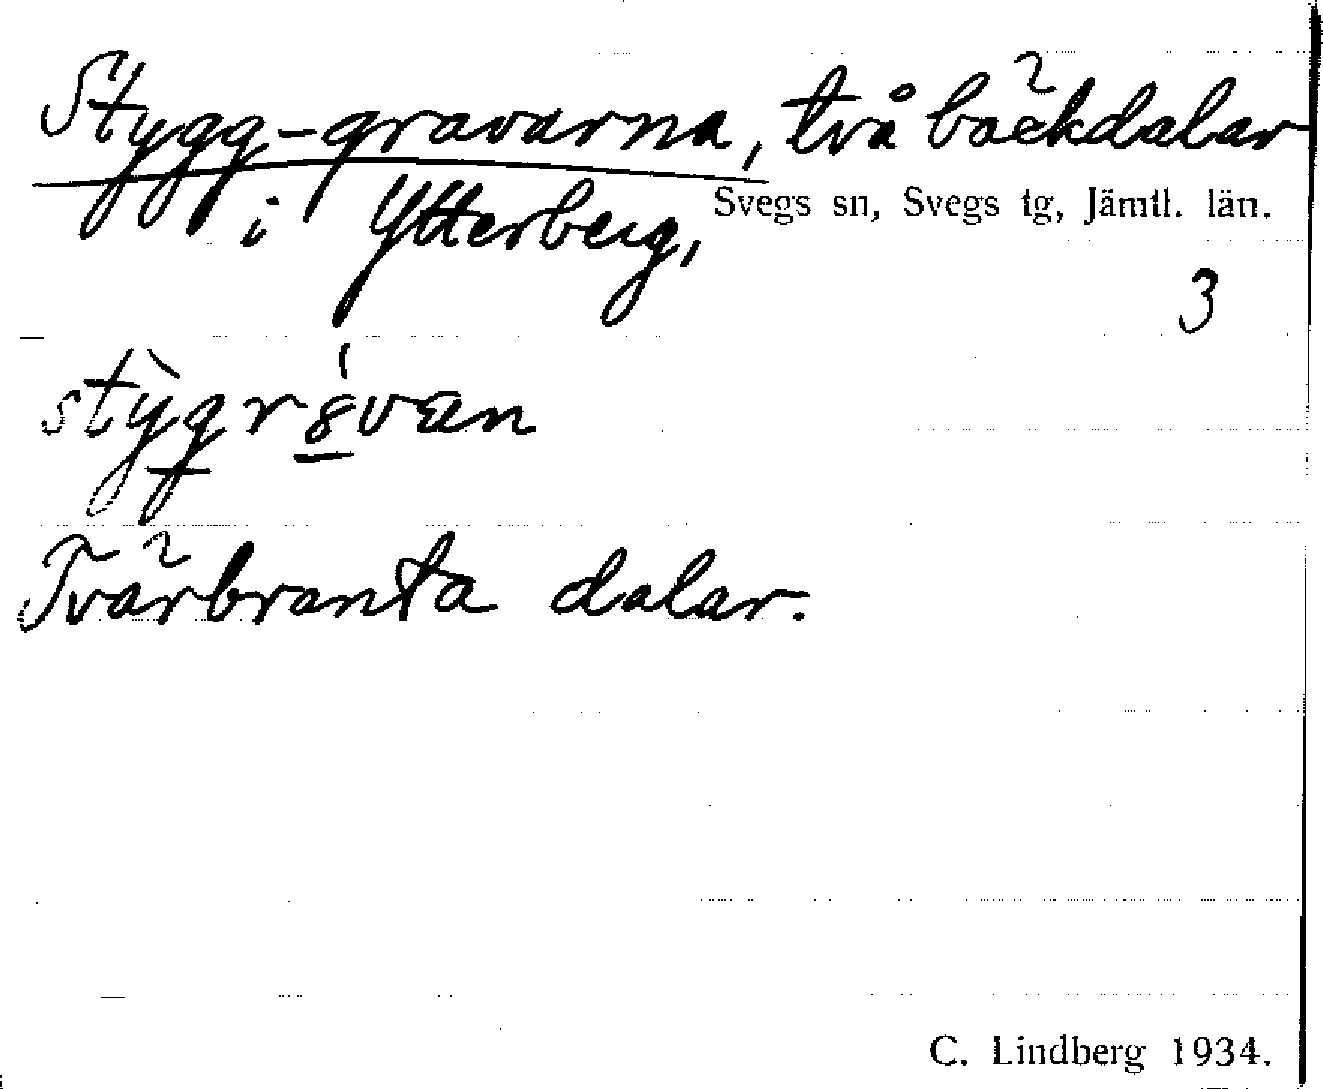 Stygg-gravarna, två bäckdalar
i Ytterberg, Svegs sn, Svegs tg, Jämtl. län.
3
Tvärbranta dalar.
C. Lindberg 1934.